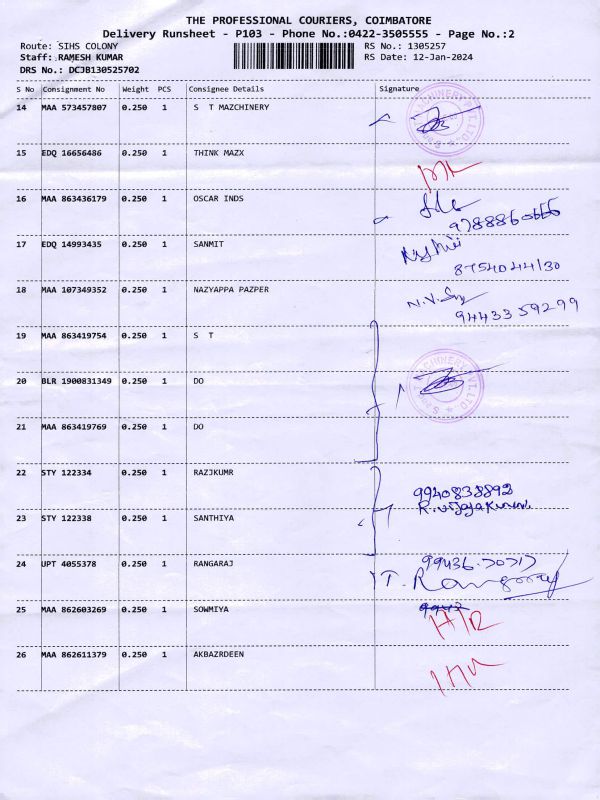 THE PROFESSIONAL COURIERS, COIMBATORE
Delivery Runsheet - P103 - Phone No.:0422-3505555 - Page No.:2
Route: SIHS COLONY RS No.: 1305257
Staff: RAMESH KUMAR RS Date: 12-Jan-2024
DRS No.: DCJB130525702
S No Consignment No Weight PCS Consignee Details Signature
14 MAA 573457807 0.250 1 S T MAZCHINERY
15 EDQ 16656486 0.250 1 THINK MAZX
16 MAA 863436179 0.250 1 OSCAR INDS
9788860666
17 EDQ 14993435 0.250 1 SANMIT
8754044130
18 MAA 107349352 0.250 1 NAZYAPPA PAZPER
9443359299
19 MAA 863419754 0.250 1 S T
20 BLR 1900831349 0.250 1 DO
21 MAA 863419769 0.250 1 DO
22 STY 122334 0.250 1 RAZJKUMR
9940838892
23 STY 122338 0.250 1 SANTHIYA
24 UPT 4055378 0.250 1 RANGARAJ
T. Rangaraj
25 MAA 862603269 0.250 1 SOWMIYA
26 MAA 862611379 0.250 1 AKBAZRDEEN